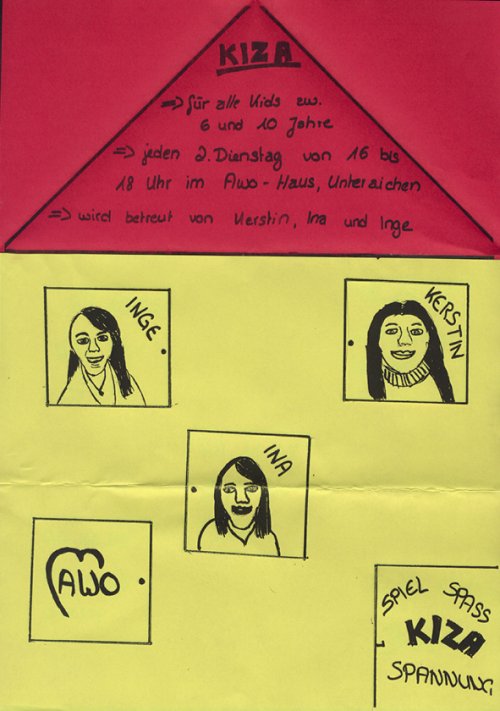 KIZA
=> für alle Kids zw.
6 und 10 Jahre
=> jeden 2. Dienstag von 16 bis
18 Uhr im Awo-Haus, Unteraichen
=> wird betreut von Kerstin, Ina und Inge
INGE
KERSTIN
INA
AWO
SPIEL SPASS
KIZA
SPANNUNG